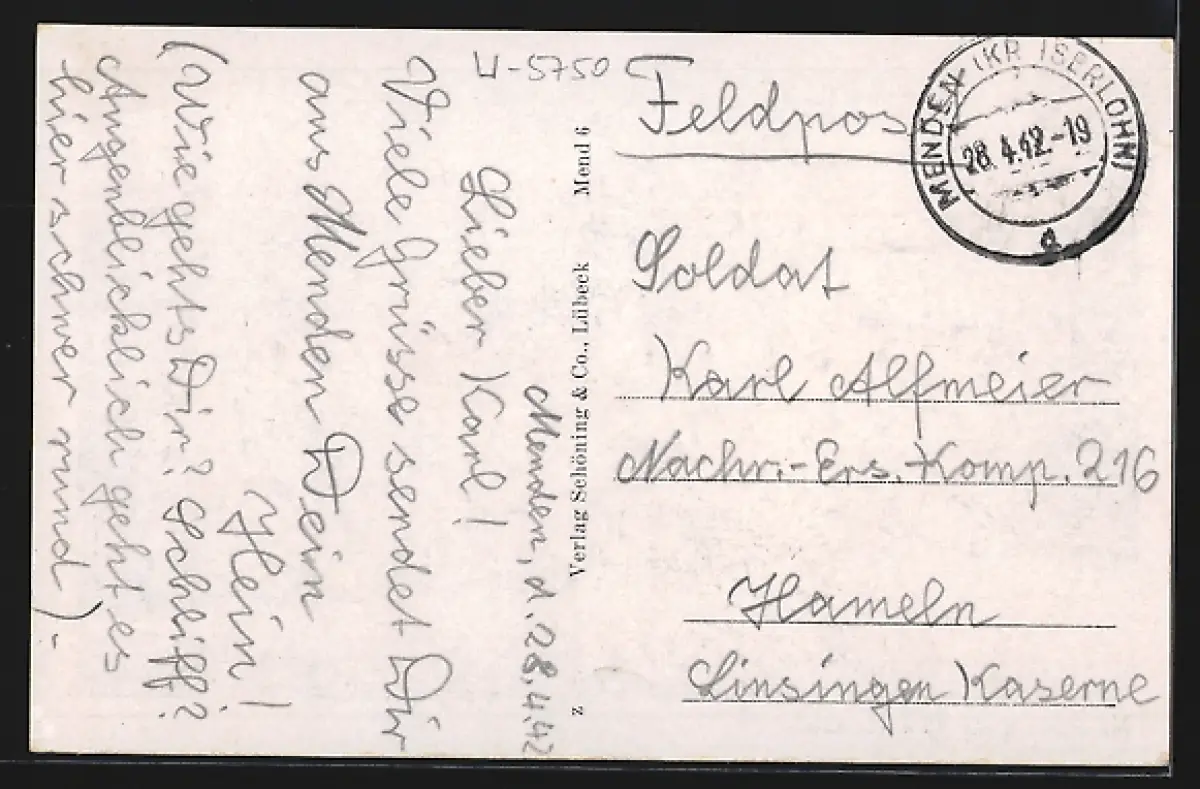 U-5750
Feldpos
MENDEN (KR ISERLOHN)
28.4.42.-19
a
Soldat
Karl Alfmeier
Nachr.-Ers.-Komp. 216
Hameln
Linsingen Kaserne
z Verlag Schöning & Co., Lübeck Mend 6
Menden, d. 28.4.42
Lieber Karl!
Viele Grüsse sendet Dir
aus Menden Dein
Hein!
(Wie gehts Dir? Schleiff?
Augenblicklich geht es
hier schwer rund).-